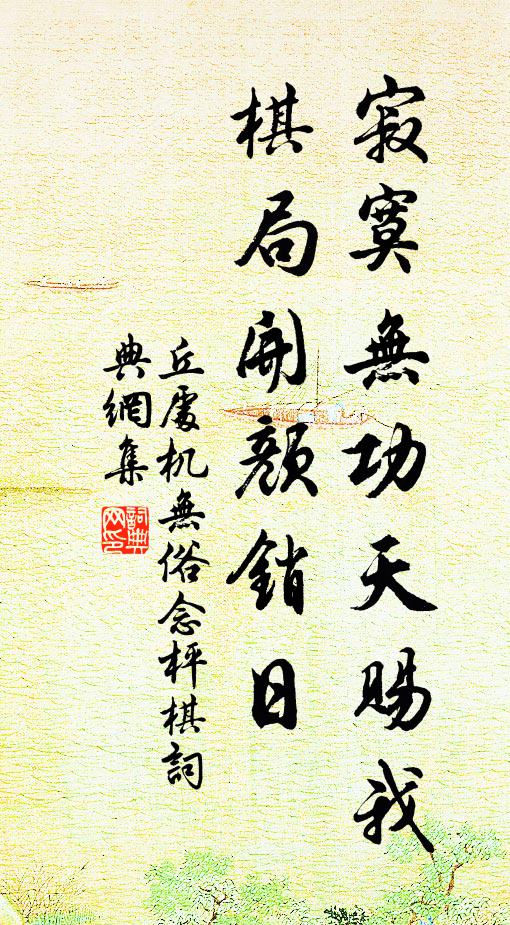 寂寞無功天賜我
棋局開顏銷日
丘處机無俗念枰棋詞
典網集
詞典
网印